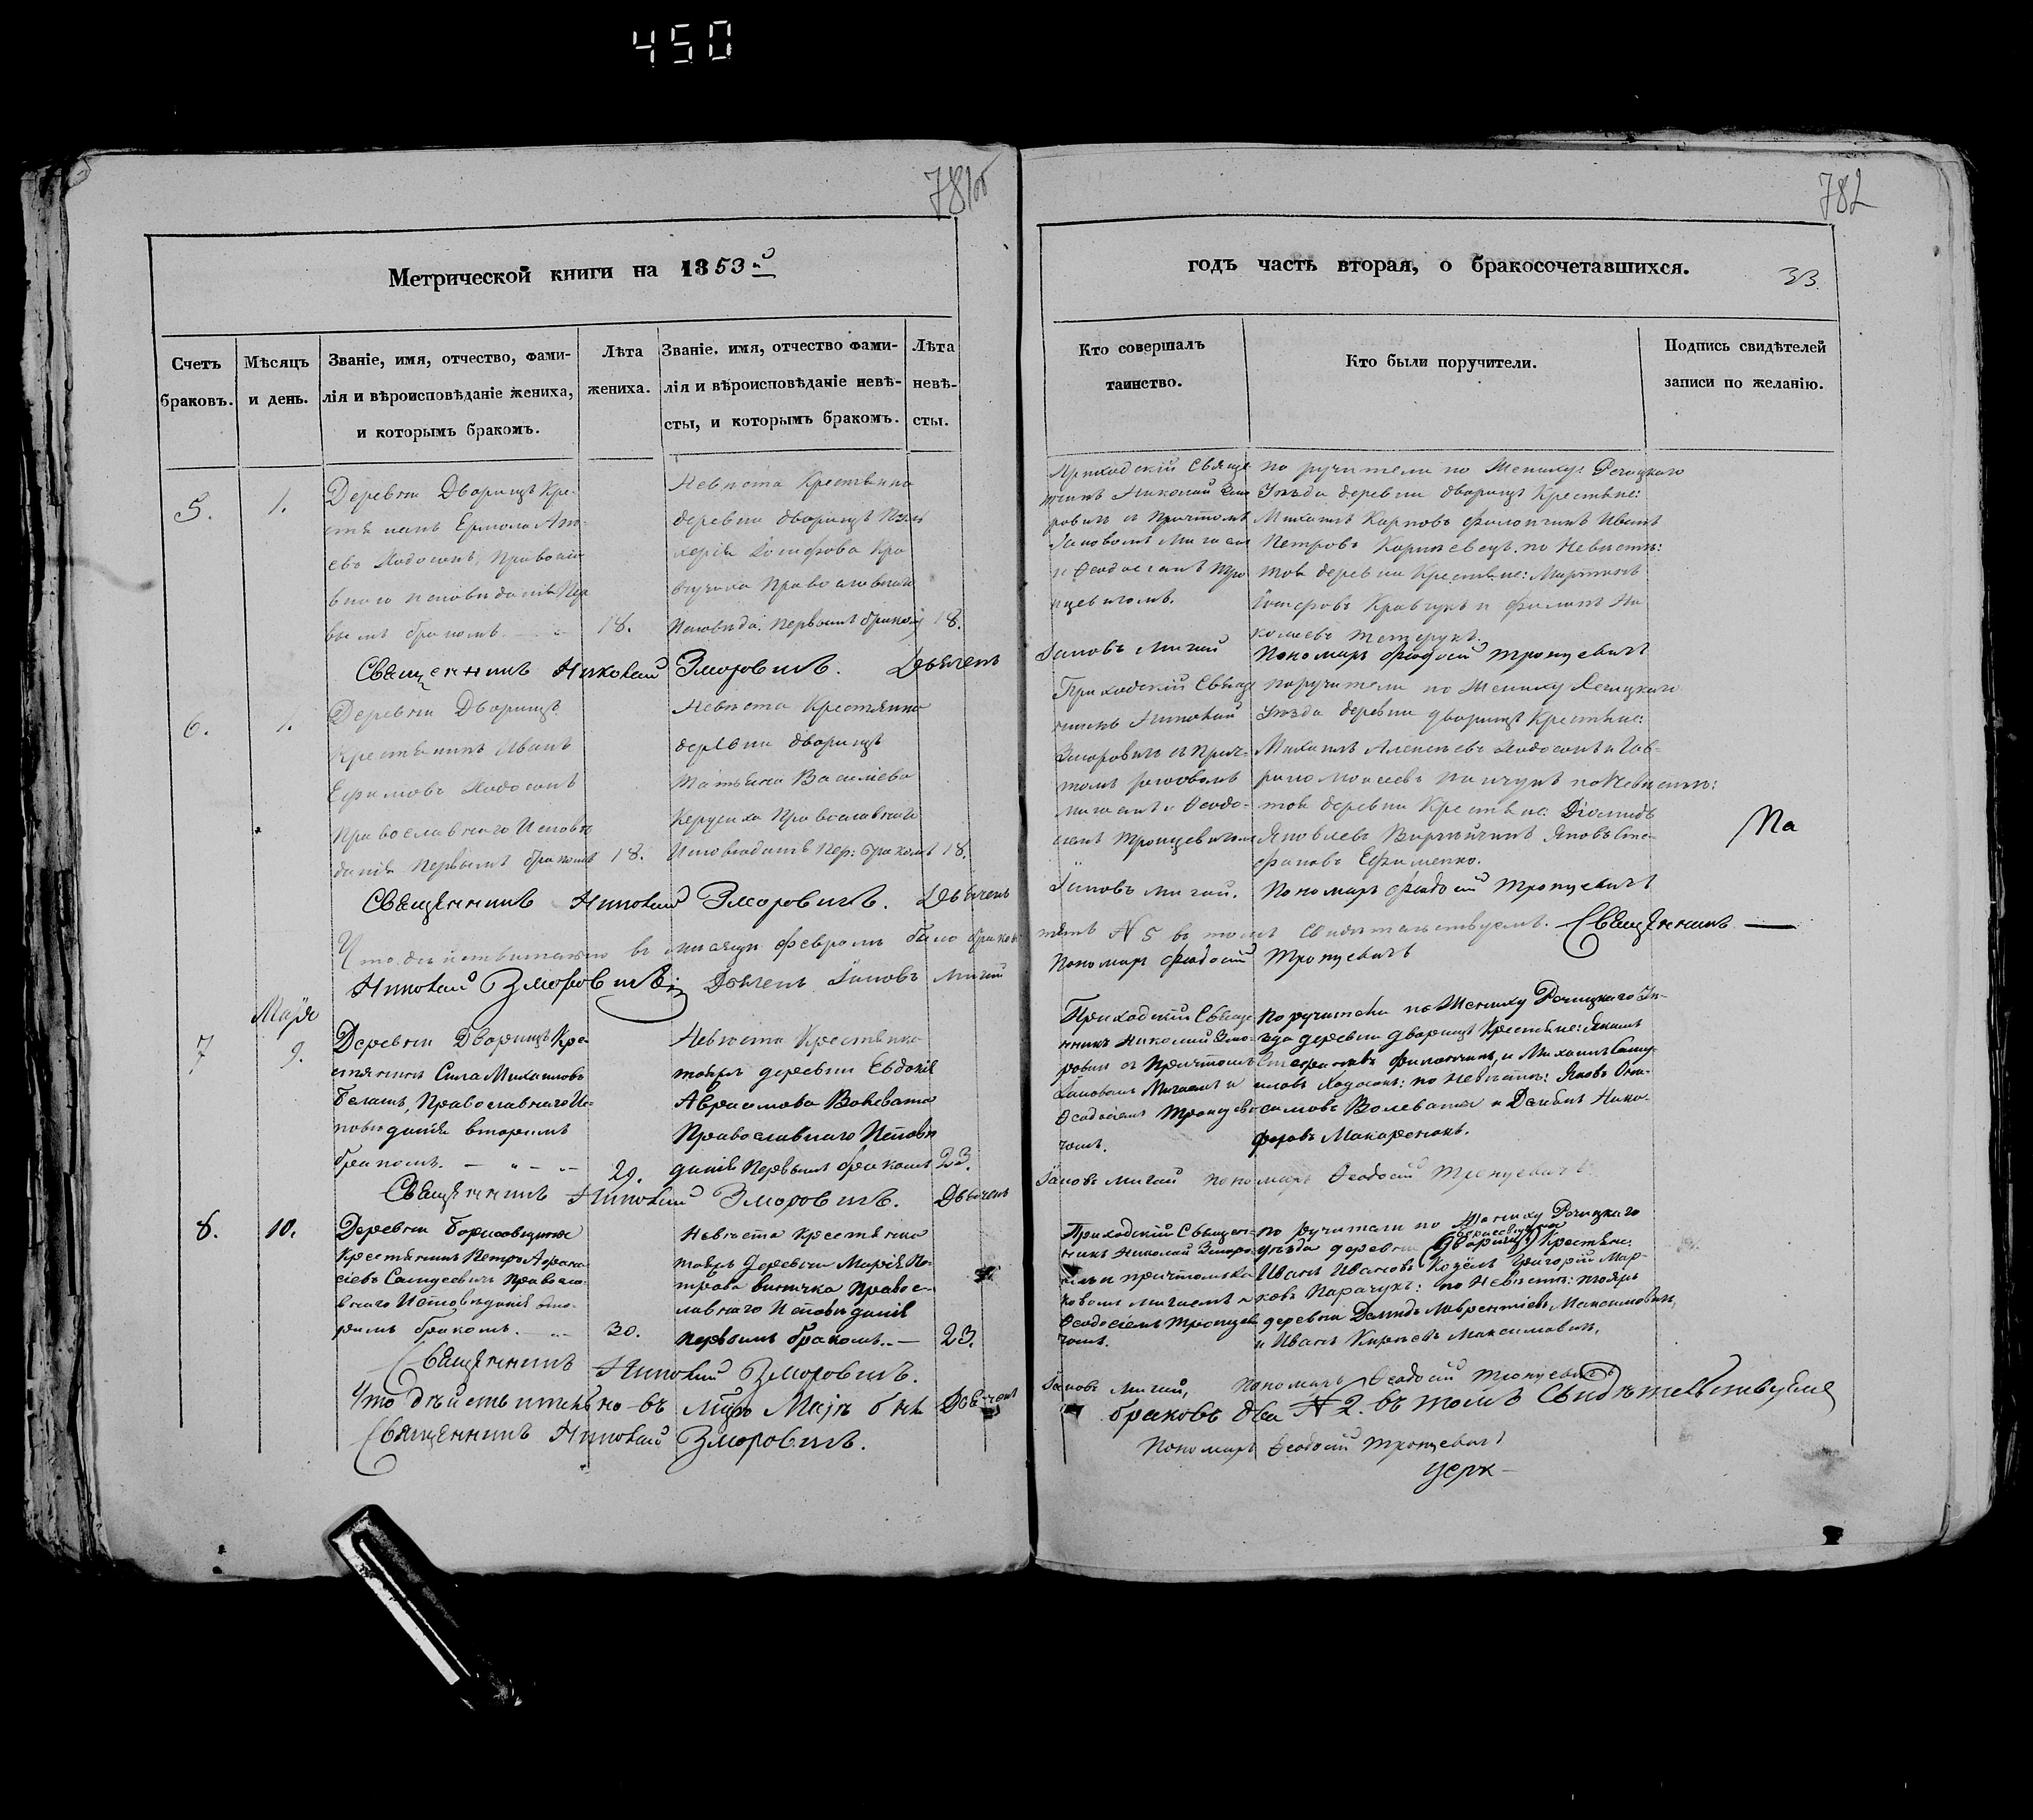 450
781об
782
Метрической книги на 1853й
годъ часть вторая, о бракосочетавшихся.
33.
Счетъ браковъ.
Мѣсяцъ и день.
Званіе, имя, отчество, фами-
лія и вѣроисповѣданіе жениха,
и которымъ бракомъ.
Лѣта
жениха.
Званіе. имя, отчество фами-
лія и вѣроисповѣданіе невѣ-
сты, и которымъ бракомъ.
Лѣта
невѣ-
сты.
Кто совершалъ
таинство.
Кто были поручители.
Подпись свидѣтелей
записи по желанію.
5.
1.
Деревни Дворищъ Кре-
Ходосокъ, Православ
внаго исповиданія Пер
вымъ бракомъ.
18.
Невѣста Крестянка
деревни дворищъ
Іосифова Кра
вчучка Православнаго
Исповѣда. первымъ бракомъ
18.
Приходскій Свяще
нникъ Николай Змо
ровичъ съ Причтомъ
Іаковомъ Мигаем
и Ѳеодосіемъ Тро
пцевичомъ.
по ручители по Жениху: Речицкаго
Уѣзда деревни дворищъ Крестяне:
Михаилъ Карповъ Филончикъ Иванъ
Петровъ по Невѣстѣ:
той деревни Крестяне: Мартинъ
Іосифовъ Кравчукъ и Филипъ Ни
колаевъ Тетерукъ.
Священникъ Николай Зморовичъ. Дьячекъ
Іаковъ Мигай
Пономаръ Феодосий Тропцевичъ
6.
1.
Деревни Дворищъ
Крестянинъ Иванъ
Ефимовъ Ходосокъ
Православнаго Исповѣ
данія первымъ бракомъ
18.
Невѣста Крестянка
деревни дворищъ
Татьяна Василіева
Православнаго
Исповѣданія пер: бракомъ
18.
Приходскій Свяще
нникъ Николай
Зморовичъ съ Прич-
томъ Іаковомъ
Мигаемъ и Ѳеодо-
сіемъ Тропцевичомъ
поручители по Жениху Речицкаго
Уѣзда деревни дворищъ Крестяне:
Михаилъ Алексѣевъ Ходосокъ и Гав-
рило Моисеевъ по Невѣстѣ:
той деревни Крестяне: Діомидъ
Яковлевъ Яковъ Сте-
фановъ Ефименко.
Па
Священникъ Николай Зморовичъ. Дьячекъ
Іаковъ Мигай.
Пономаръ Феодосий Тропцевичъ
Что дѣйствительно въ мисяци февралѣ было браковъ
пять N 5 въ томъ свидѣтельствуемъ. Священникъ
Николай Зморовичъ Дьячекъ Іаковъ Мигай
Пономаръ Феодосий Тропцевичъ
Маія
7
9.
Деревни Дворищъ Кре-
стянинъ Сила Михаиловъ
Белашъ, Православнаго Ис-
повѣданія вторымъ
бракомъ.
29.
Невѣста Крестянка
тойжъ деревни Евдокія
Авраамова Волеватая
Православнаго Исповѣ
данія первымъ бракомъ
23.
Приходскій Свяще
нникъ Николай Змо-
ровичъ съ Причтомъ
Іаковомъ Мигаемъ и
Ѳеодосіемъ Тропцеви-
чомъ.
Поручители по Жениху Речицкаго Уѣ-
зда деревни дворищъ Крестяне: Якимъ
Стефановъ Филончикъ, и Михаилъ Саму-
иловъ Ходосокъ: по Невѣстѣ: Яковъ
Волеватый и Демьянъ Ники-
форовъ Макаренокъ.
Священникъ Николай Зморовичъ. Дьячекъ
Іаковъ Мигай пономаръ Ѳеодосий Тропцевичъ
8.
10.
Деревни Борисовщины
Крестянинъ Петръ Афана-
сіевъ Православ-
внаго Исповѣданія вто-
рымъ бракомъ.
30.
Невѣста Крестянка
тойжъ деревни Марія Пе-
трова Православ-
лавнаго Исповѣданія
первымъ бракомъ.
23.
Приходскій Священ-
никъ Николай Зморо-
вичъ и причтомъ Іа-
ковомъ Мигаемъ и
Ѳеодосіемъ Тропцеви-
чомъ.
по ручители по Жениху Речицкаго
уѣзда деревни (Дворищъ) Борисовщины Крестяне:
Иванъ Ивановъ Козёлъ Григорій Мар-
ковъ Парачукъ: по Невѣстѣ: тойжъ
деревни Демидъ Лаврентіевъ Максимовичъ,
и Иванъ Кирѣевъ Максимовичъ,
Священникъ Николай Зморовичъ.
Дьячекъ
Іаковъ Мигай, пономаръ Ѳеодосий Тропцевичъ
Что дѣйствительно въ мцѣ Маіѣ было
браковъ два N 2. въ томъ Свидѣтельствуемъ
Священникъ Николай Зморовичъ.
Пономаръ Ѳеодосий Тропцевичъ
церк-